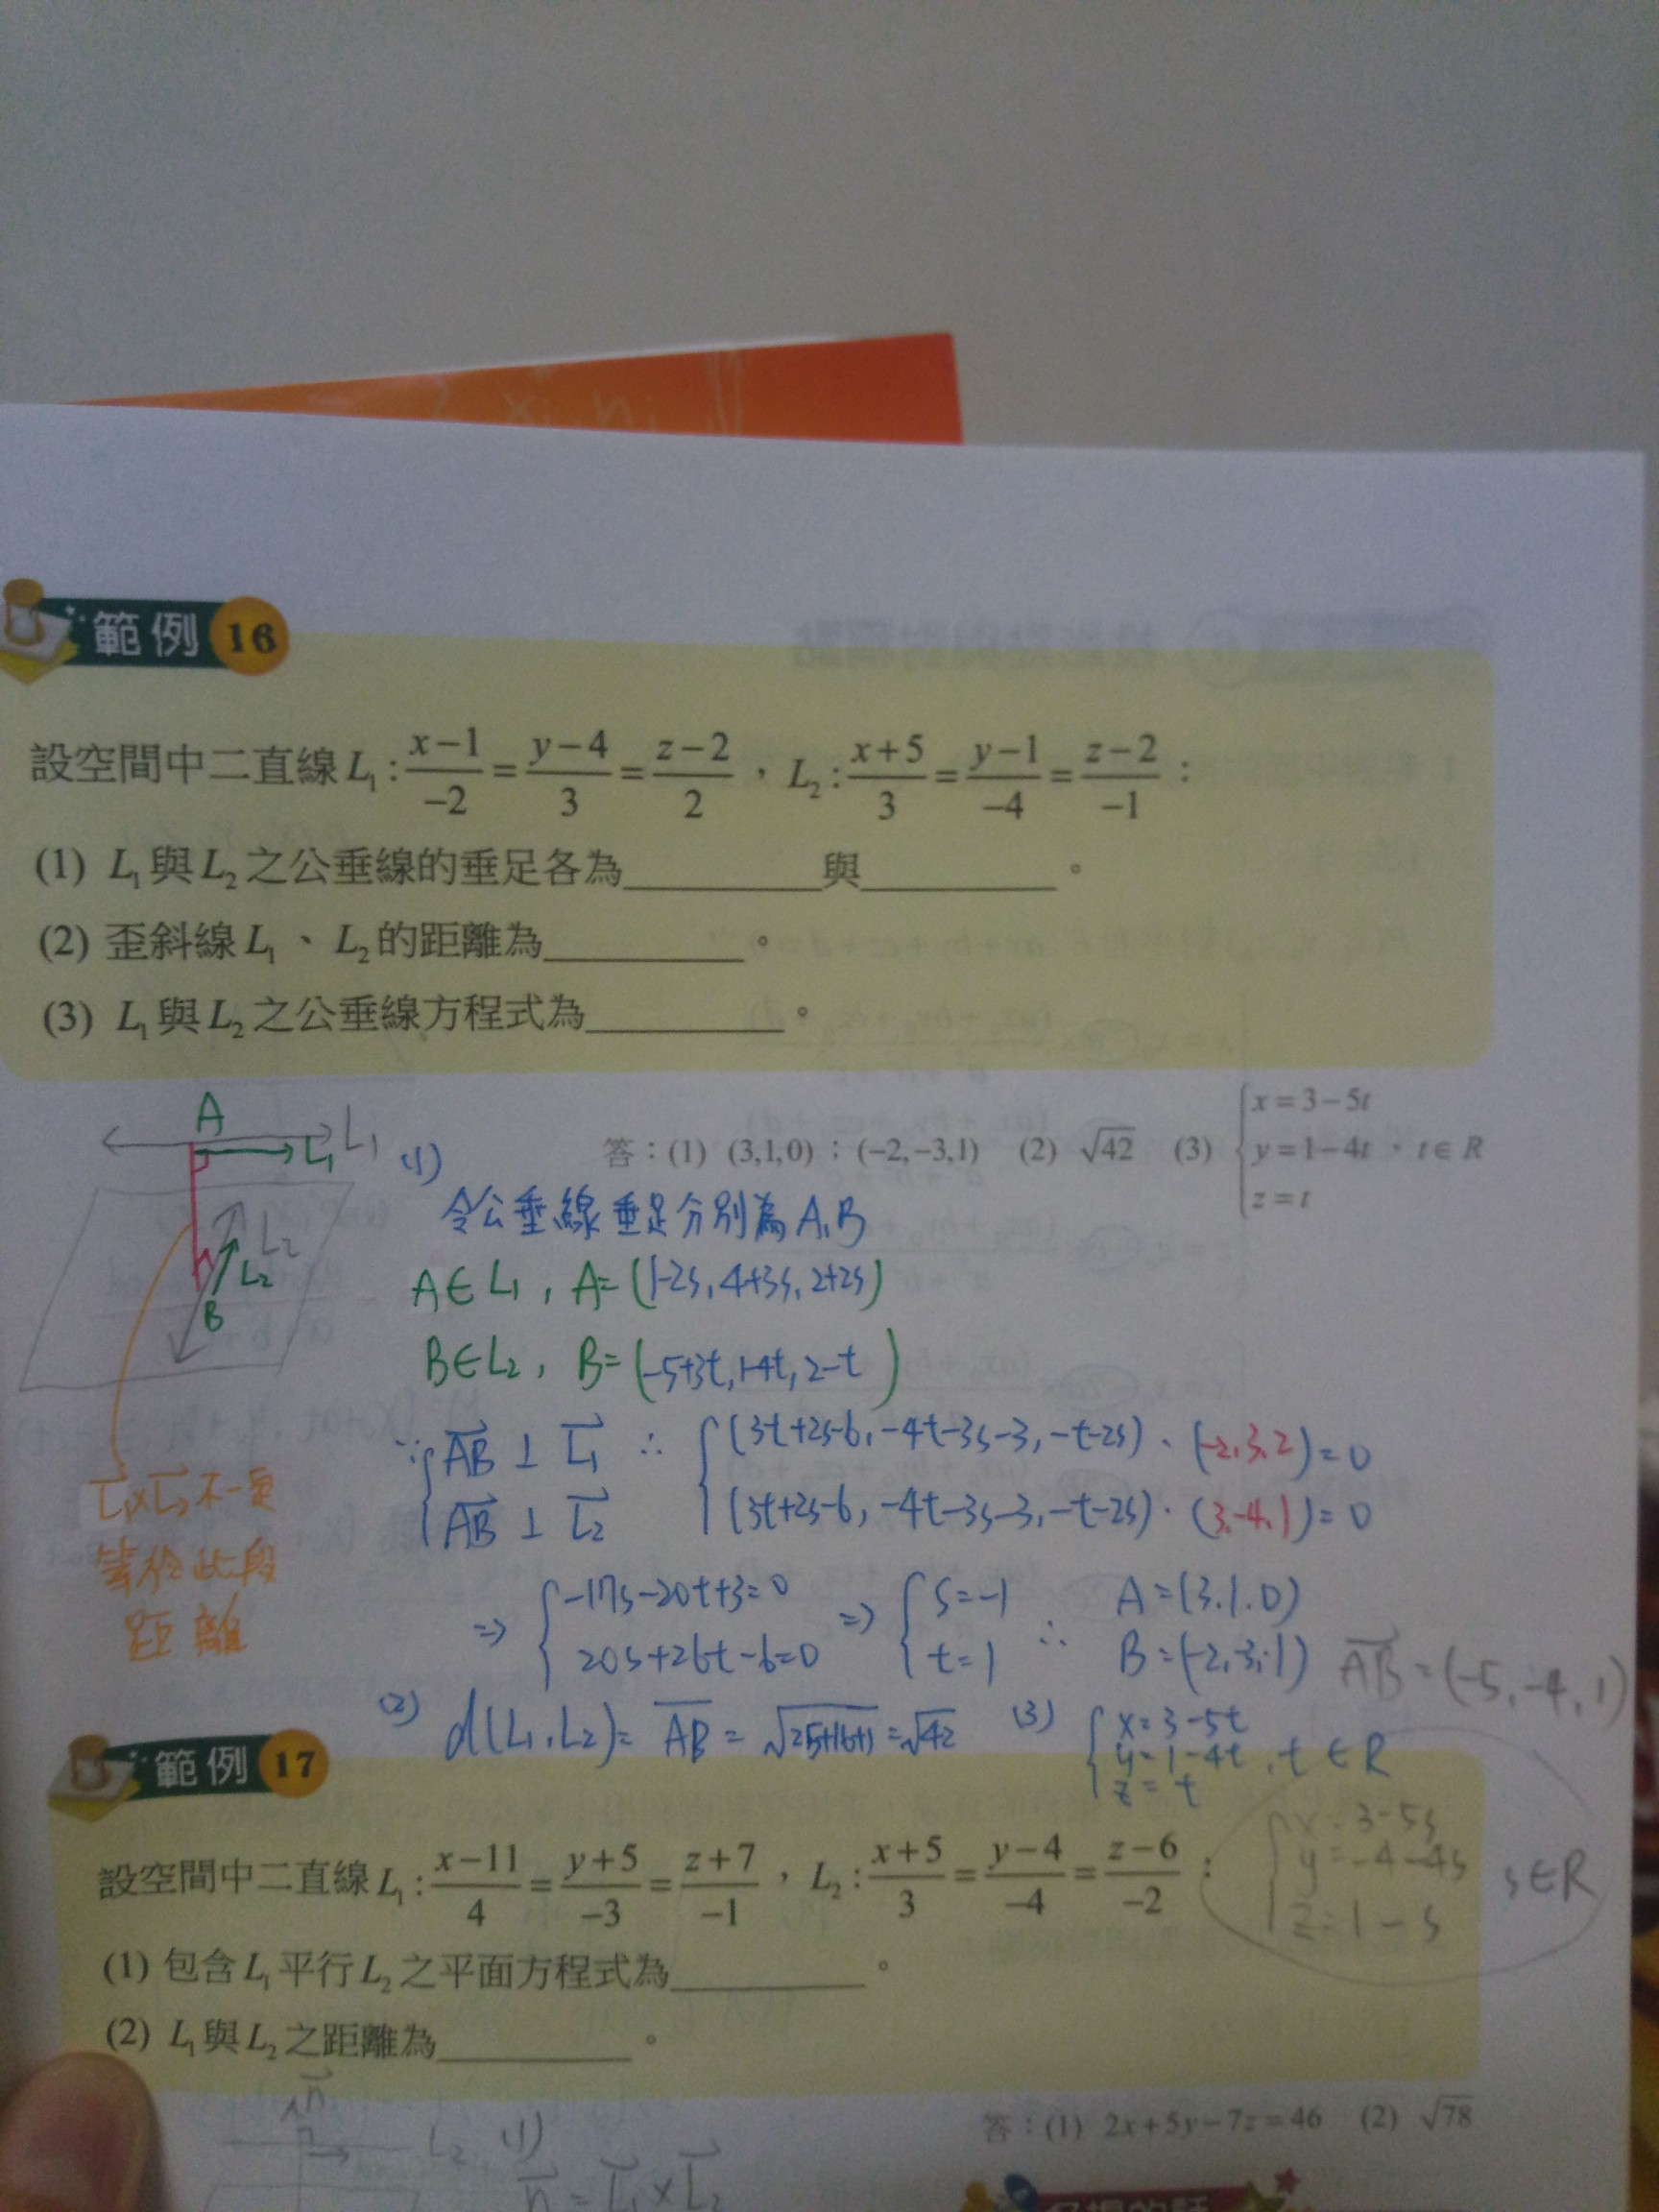 範例 16
設空間中二直線 L₁ : (x−1)/−2 = (y−4)/3 = (z−2)/2 , L₂ : (x+5)/3 = (y−1)/−4 = (z−2)/−1 :
(1) L₁與L₂之公垂線的垂足各為__________與__________。
(2) 歪斜線L₁、L₂的距離為__________。
(3) L₁與L₂之公垂線方程式為__________。
答:(1) (3,1,0);(−2,−3,1) (2) √42 (3) { x=3−5t
y=1−4t , t∈R
z=t
A
L₁
L₁
L₂
L₂
B
(1)
令公垂線垂足分別為A,B
A∈L₁, A=(1-2s, 4+3s, 2+2s)
B∈L₂, B=(-5+3t, 1-4t, 2-t)
∵ { AB⃗ ⊥ L₁⃗ ∴ { (3t+2s-6, -4t-3s-3, -t-2s)·(-2,3,2)=0
AB⃗ ⊥ L₂⃗ (3t+2s-6, -4t-3s-3, -t-2s)·(3,-4,-1)=0
L₁⃗×L₂⃗不一定
等於此段
距離
⇒ { -17s-20t+3=0 ⇒ { s=-1 ∴ A=(3,1,0)
20s+26t-6=0 t=1 B=(-2,-3,1) AB⃗=(-5,-4,1)
(2) d(L₁,L₂)= AB = √25+16+1 = √42 (3) { x=3-5t
y=1-4t , t∈R
z=t
{ x=3-5s
y=-4-4s s∈R
z=1-s
範例 17
設空間中二直線 L₁ : (x−11)/4 = (y+5)/−3 = (z+7)/−1 , L₂ : (x+5)/3 = (y−4)/−4 = (z−6)/−2 :
(1) 包含L₁平行L₂之平面方程式為__________。
(2) L₁與L₂之距離為__________。
答:(1) 2x+5y−7z=46 (2) √78
n⃗
L₂
(1)
n⃗ = L₁⃗×L₂⃗